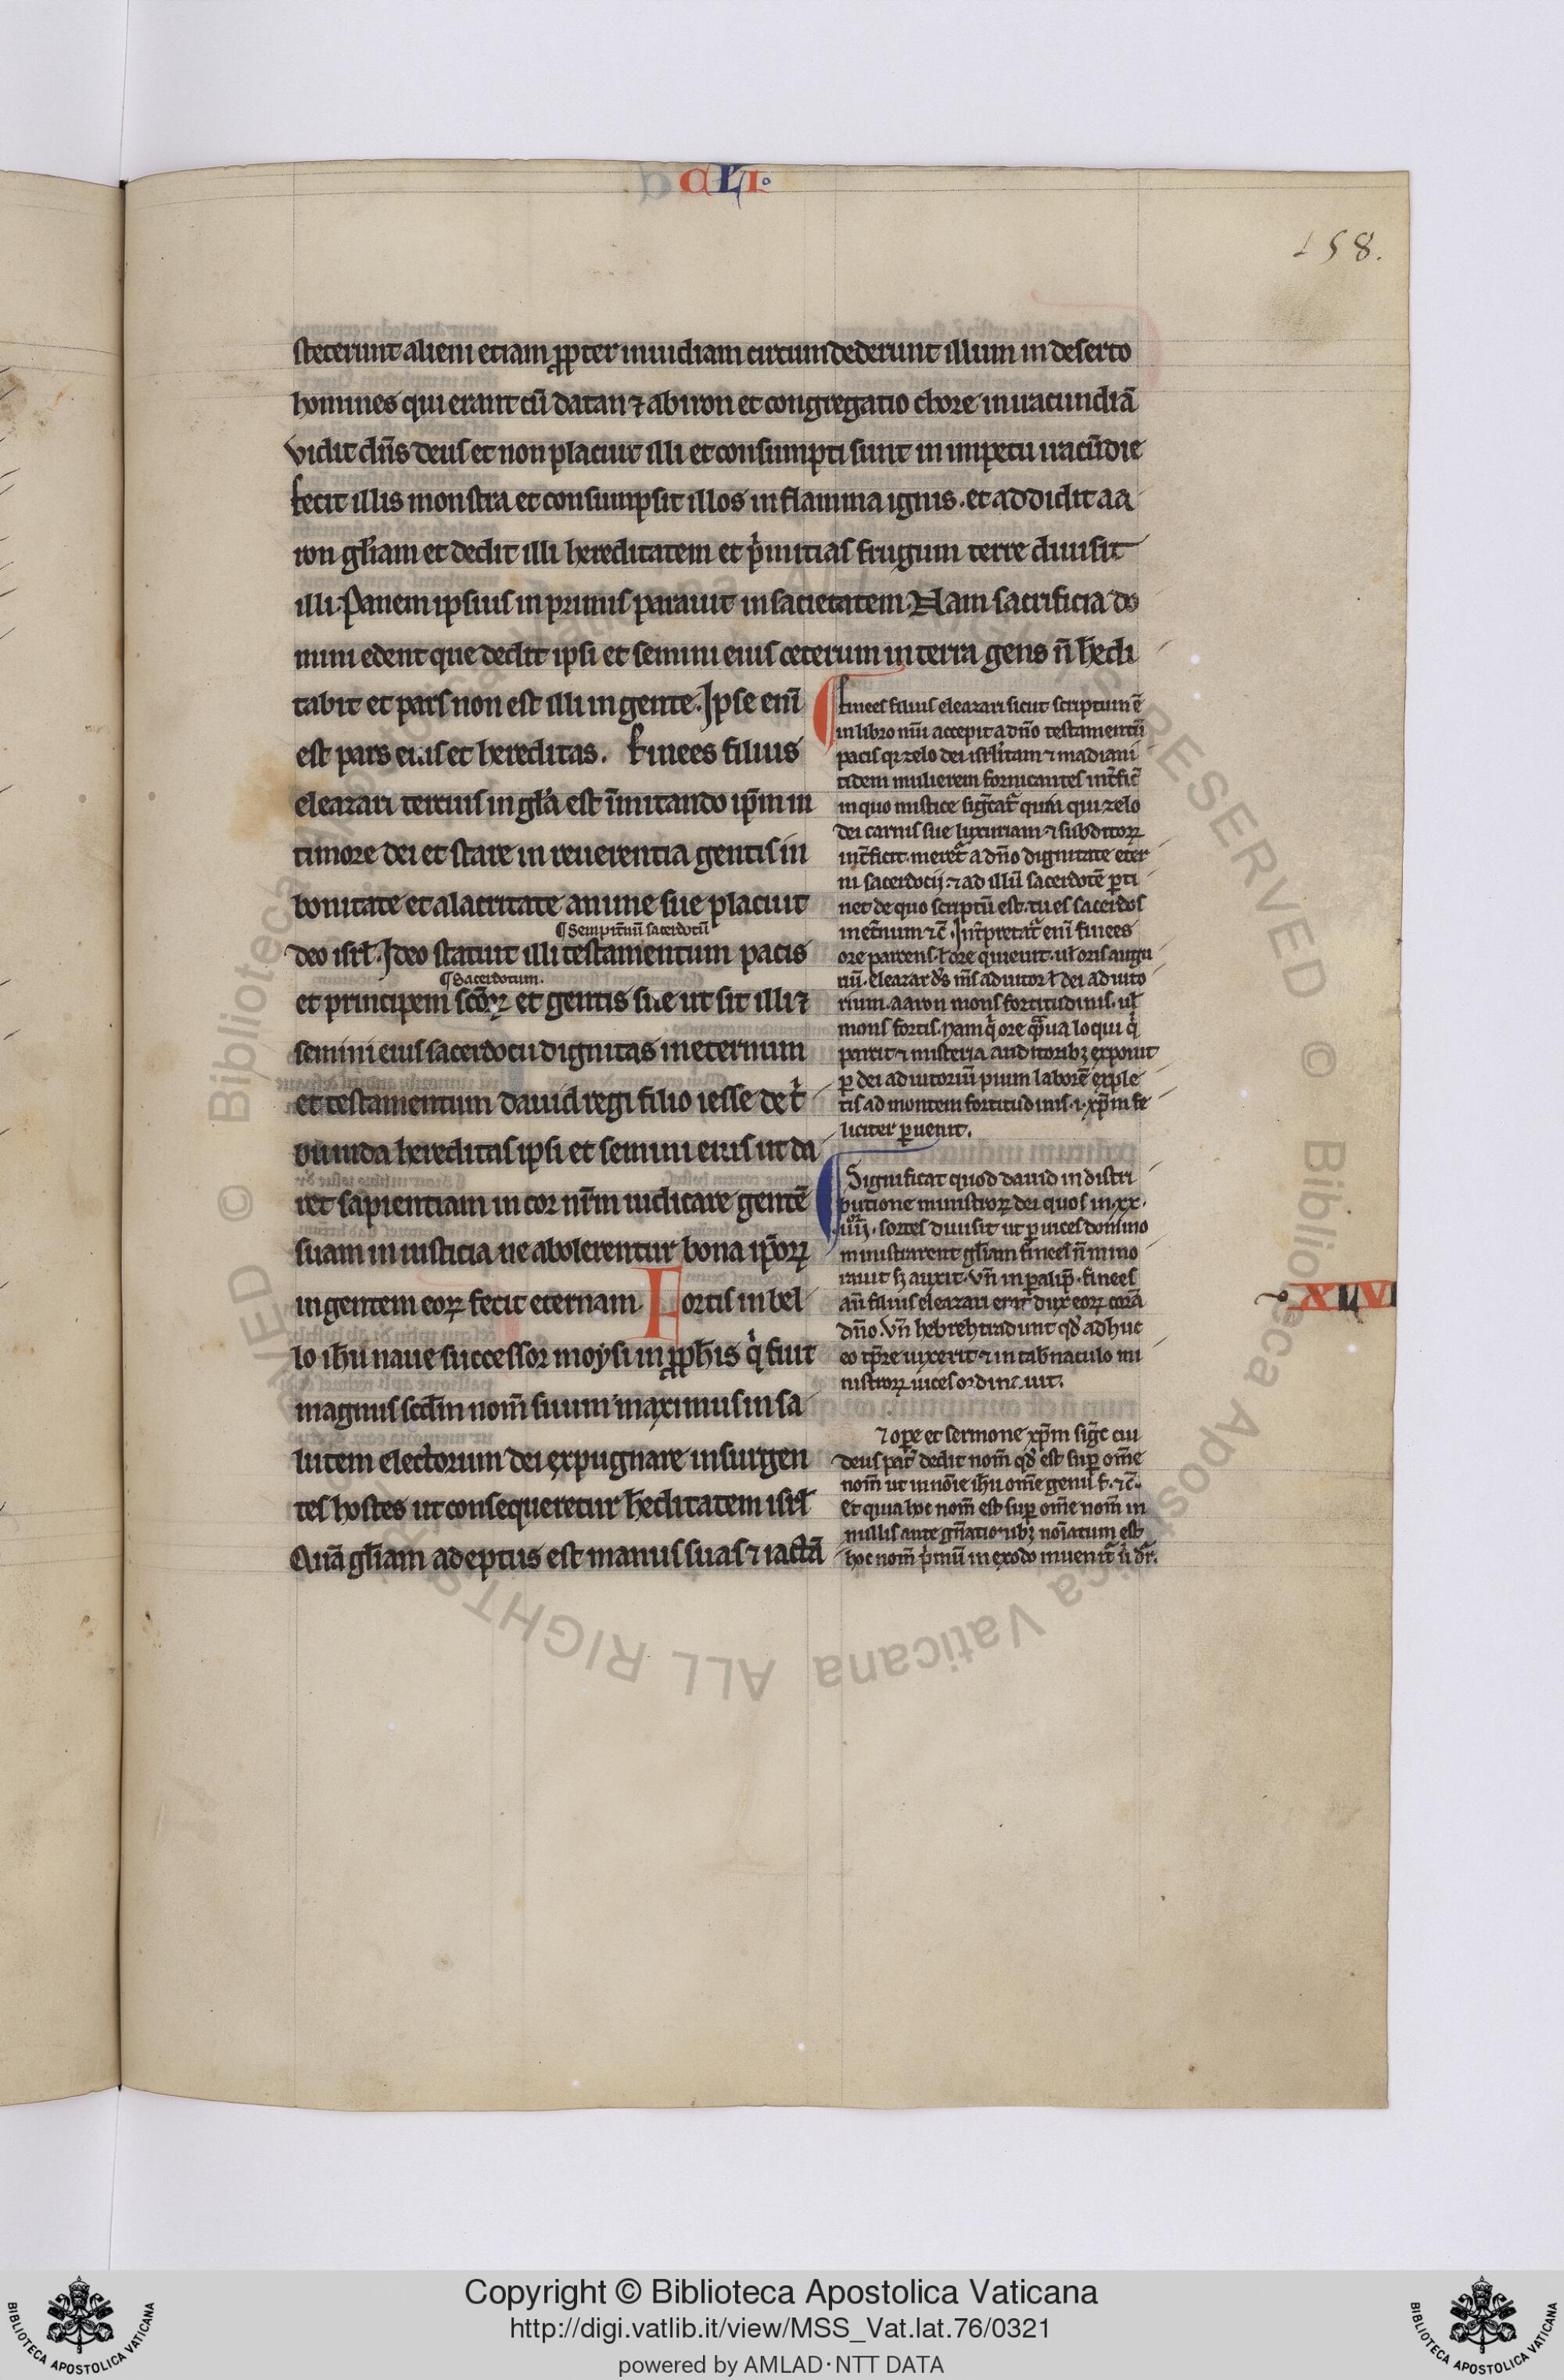 CLI.
158.
steterunt alieni etiam ꝓpter inuidiam circumdederunt illum in deserto
homines qui erant cū datan ⁊ abiron et congregatio chore in iracundiā
vidit dn̄s deus et non placuit illi et consumpti sunt in impetu iracūdie
fecit illis monstra et consumpsit illos in flamma ignis. et addidit aa
ron gl̄iam et dedit illi hereditatem et p̾mitias frugum terre diuisit
illi. Panem ipsius in primis parauit in sacietatem. Nam sacrificia do
mini edent que dedit ipsi et semini eius ceterum in terra gens n̄ h̄edi
tabit et pars non est illi in gente. Ipse eni̅
est pars eius et hereditas. Finees filius
eleazari tercius in gl̄a est īmitando ip̄m in
timore dei et stare in reuerentia gentis in
bonitate et alacritate anime sue placuit
¶ Sempit̾nū sacerdotiū
deo isrl̄. Ideo statuit illi testamentum pacis
¶ Sacerdotum.
et principem sc̄oꝝ et gentis sue ut sit illi ⁊
semini eius sacerdotii dignitas in eternum
et testamentum dauid regi filio iesse de t̾
bu iuda hereditas ipsi et semini eius ut da
ret sapientiam in cor nr̄m iudicare gentē
suam in iusticia ne abolerentur bona ip̄oꝝ
in gentem eoꝝ fecit eternam. Fortis in bel
lo ih̄u naue successor moysi in ꝓph̄is q̾ fuit
magnus scd̄m nom̄ suum maximus in sa
lutem electorum dei expugnare insurgen
tes hostes ut consequeretur h̄editatem isrl̄
Quā gl̄iam adeptus est manus suas ⁊ iactā
Finees filius eleazari sicut scriptum ē
in libro nūi accepit a dn̄o testamentū
pacis qr zelo dei isrl̄itam ⁊ madiani
tidem mulierem fornicantes int̄fic̄
in quo mistice sig̅cat̾ qm̄ qui zelo
dei carnis sue luxuriam ⁊ subditoꝝ
int̄ficit. meret̾ a dn̄o dignitate eter
ni sacerdocij. ⁊ ad illū sacerdotē ꝑti
net de quo scriptū est. tu es sacerdos
inet̄num ⁊c̄. Int̄pretat̾ eni̅ finees
ore parcens. ł ore quieuit. ul̄ oris augu
riū. eleazar d̄s m̄s adiutor ł dei adiuto
rium. aaron mons fortitudinis. ul̄
mons fortis. Nam q̾ ore praua loqui
parcit ⁊ misteria auditoribꝫ exponit
ꝑ dei adiutoriū pium laborē exple
tis ad montem fortitudinis .i. xp̄m fe
liciter ꝑuenit.
Significat quod dauid in distri
butione ministroꝝ dei quos in .xx.
iiii. sortes diuisit ut ꝑ uices domino
ministrarent gl̄iam finees n̄ mino
rauit sꝫ auxit. vn̄ in ꝑalip̄. finees
aū filius eleazari erit dux eoꝝ corā
dn̄o. vn̄ hebrei tradunt qd̄ adhuc
eo tp̄re uixerit ⁊ in tab̄naculo mi
nistroꝝ uices ordinauit.
⁊ oꝑe et sermone xp̄m sig̅t cui
deus pat̾ dedit nom̄ qd̄ est suꝑ om̄e
nom̄ ut in nōie ih̄u om̄e genu f. ⁊c̄.
Et quia hoc nom̄ est suꝑ om̄e nom̄ in
nullis ante gn̄atioibꝫ noīatum est
hoc nom̄ p̾mū in exodo inuenit̾
XLVI
Copyright © Biblioteca Apostolica Vaticana
http://digi.vatlib.it/view/MSS_Vat.lat.76/0321
powered by AMLAD·NTT DATA
BIBLIOTECA APOSTOLICA VATICANA
BIBLIOTECA APOSTOLICA VATICANA